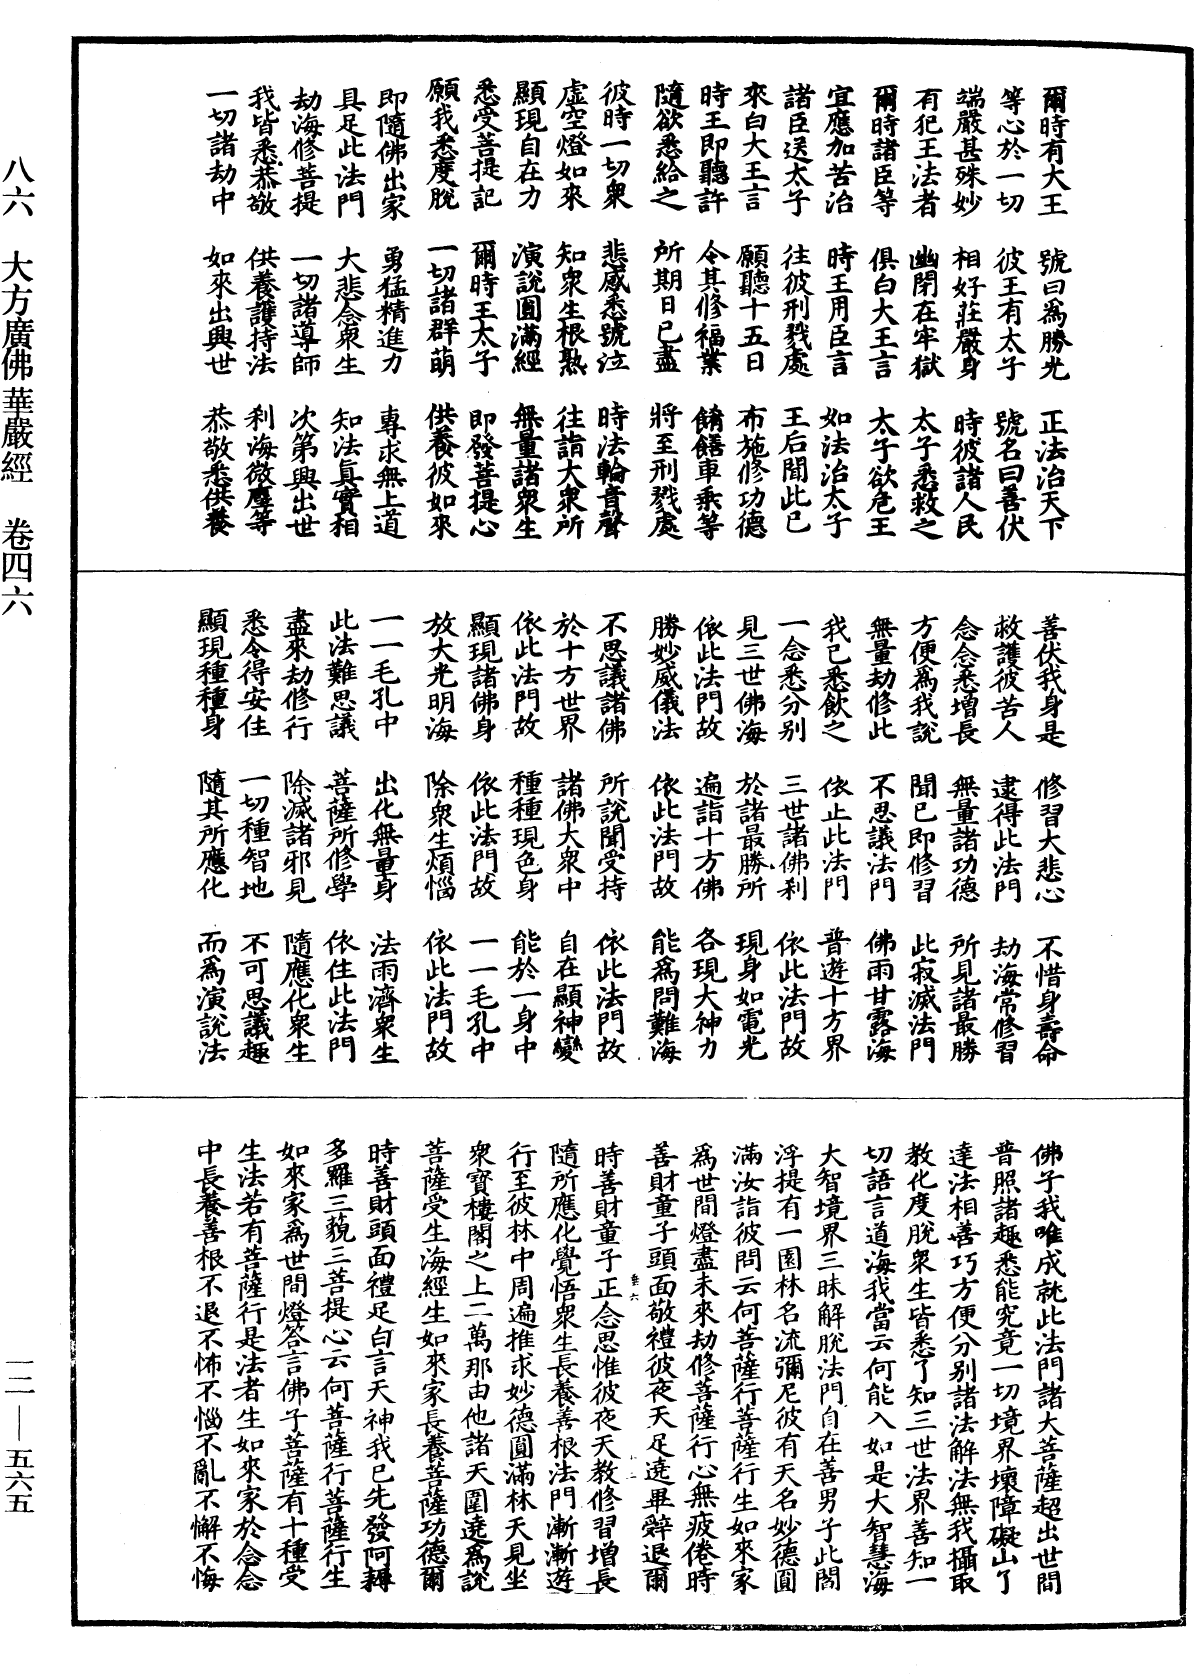 爾時有大王　號曰爲勝光　正法治天下
等心於一切　彼王有太子　號名曰善伏
端嚴甚殊妙　相好莊嚴身　時彼諸人民
有犯王法者　幽閉在牢獄　太子悉救之
爾時諸臣等　俱白大王言　太子欲危王
宜應加苦治　時王用臣言　如法治太子
諸臣送太子　往彼刑戮處　王后聞此已
來白大王言　願聽十五日　布施修功德
時王即聽許　令其修福業　餚饍車乘等
隨欲悉給之　所期日已盡　將至刑戮處
彼時一切衆　悲感悉號泣　時法輪音聲
虛空燈如來　知衆生根熟　往詣大衆所
顯現自在力　演說圓滿經　無量諸衆生
悉受菩提記　爾時王太子　即發菩提心
願我悉度脫　一切諸群萌　供養彼如來
即隨佛出家　勇猛精進力　專求無上道
具足此法門　大悲念衆生　知法真實相
劫海修菩提　一切諸導師　次第興出世
我皆悉恭敬　供養護持法　利海微塵等
一切諸劫中　如來出興世　恭敬悉供養
善伏我身是　修習大悲心　不惜身壽命
救護彼苦人　逮得此法門　劫海常修習
念念悉增長　無量諸功德　所見諸最勝
方便爲我說　聞已即修習　此寂滅法門
無量劫修此　不思議法門　佛雨甘露海
我已悉飲之　依止此法門　普遊十方界
一念悉分別　三世諸佛刹　依此法門故
見三世佛海　於諸最勝所　現身如電光
依此法門故　遍詣十方佛　各現大神力
勝妙威儀法　依此法門故　能爲問難海
不思議諸佛　所說聞受持　依此法門故
於十方世界　諸佛大衆中　自在顯神變
依此法門故　種種現色身　能於一身中
顯現諸佛身　依此法門故　一一毛孔中
放大光明海　除衆生煩惱　依此法門故
一一毛孔中　出化無量身　法雨濟衆生
此法難思議　菩薩所修學　依住此法門
盡來劫修行　除滅諸邪見　隨應化衆生
悉令得安住　一切種智地　不可思議趣
顯現種種身　隨其所應化　而爲演說法
佛子我唯成就此法門諸大菩薩超出世間
普照諸趣悉能究竟一切境界壞障礙山了
達法相善巧方便分別諸法解法無我攝取
教化度脫衆生皆悉了知三世法界善知一
切語言道海我當云何能入如是大智慧海
大智境界三昧解脫法門自在善男子此閻
浮提有一園林名流彌尼彼有天名妙德圓
滿汝詣彼問云何菩薩行菩薩行生如來家
爲世間燈盡未來劫修菩薩行心無疲倦時
善財童子頭面敬禮彼夜天足遶畢辭退爾
時善財童子正念思惟彼夜天教修習增長
隨所應化覺悟衆生長養善根法門漸漸遊
行至彼林中周遍推求妙德圓滿林天見坐
衆寶樓閣之上二萬那由他諸天圍遶爲說
菩薩受生海經生如來家長養菩薩功德爾
時善財頭面禮足白言天神我已先發阿耨
多羅三藐三菩提心云何菩薩行菩薩行生
如來家爲世間燈答言佛子菩薩有十種受
生法若有菩薩行是法者生如來家於念念
中長養善根不退不怖不惱不亂不懈不悔
八六　大方廣佛華嚴經　卷四六
一二—五六五